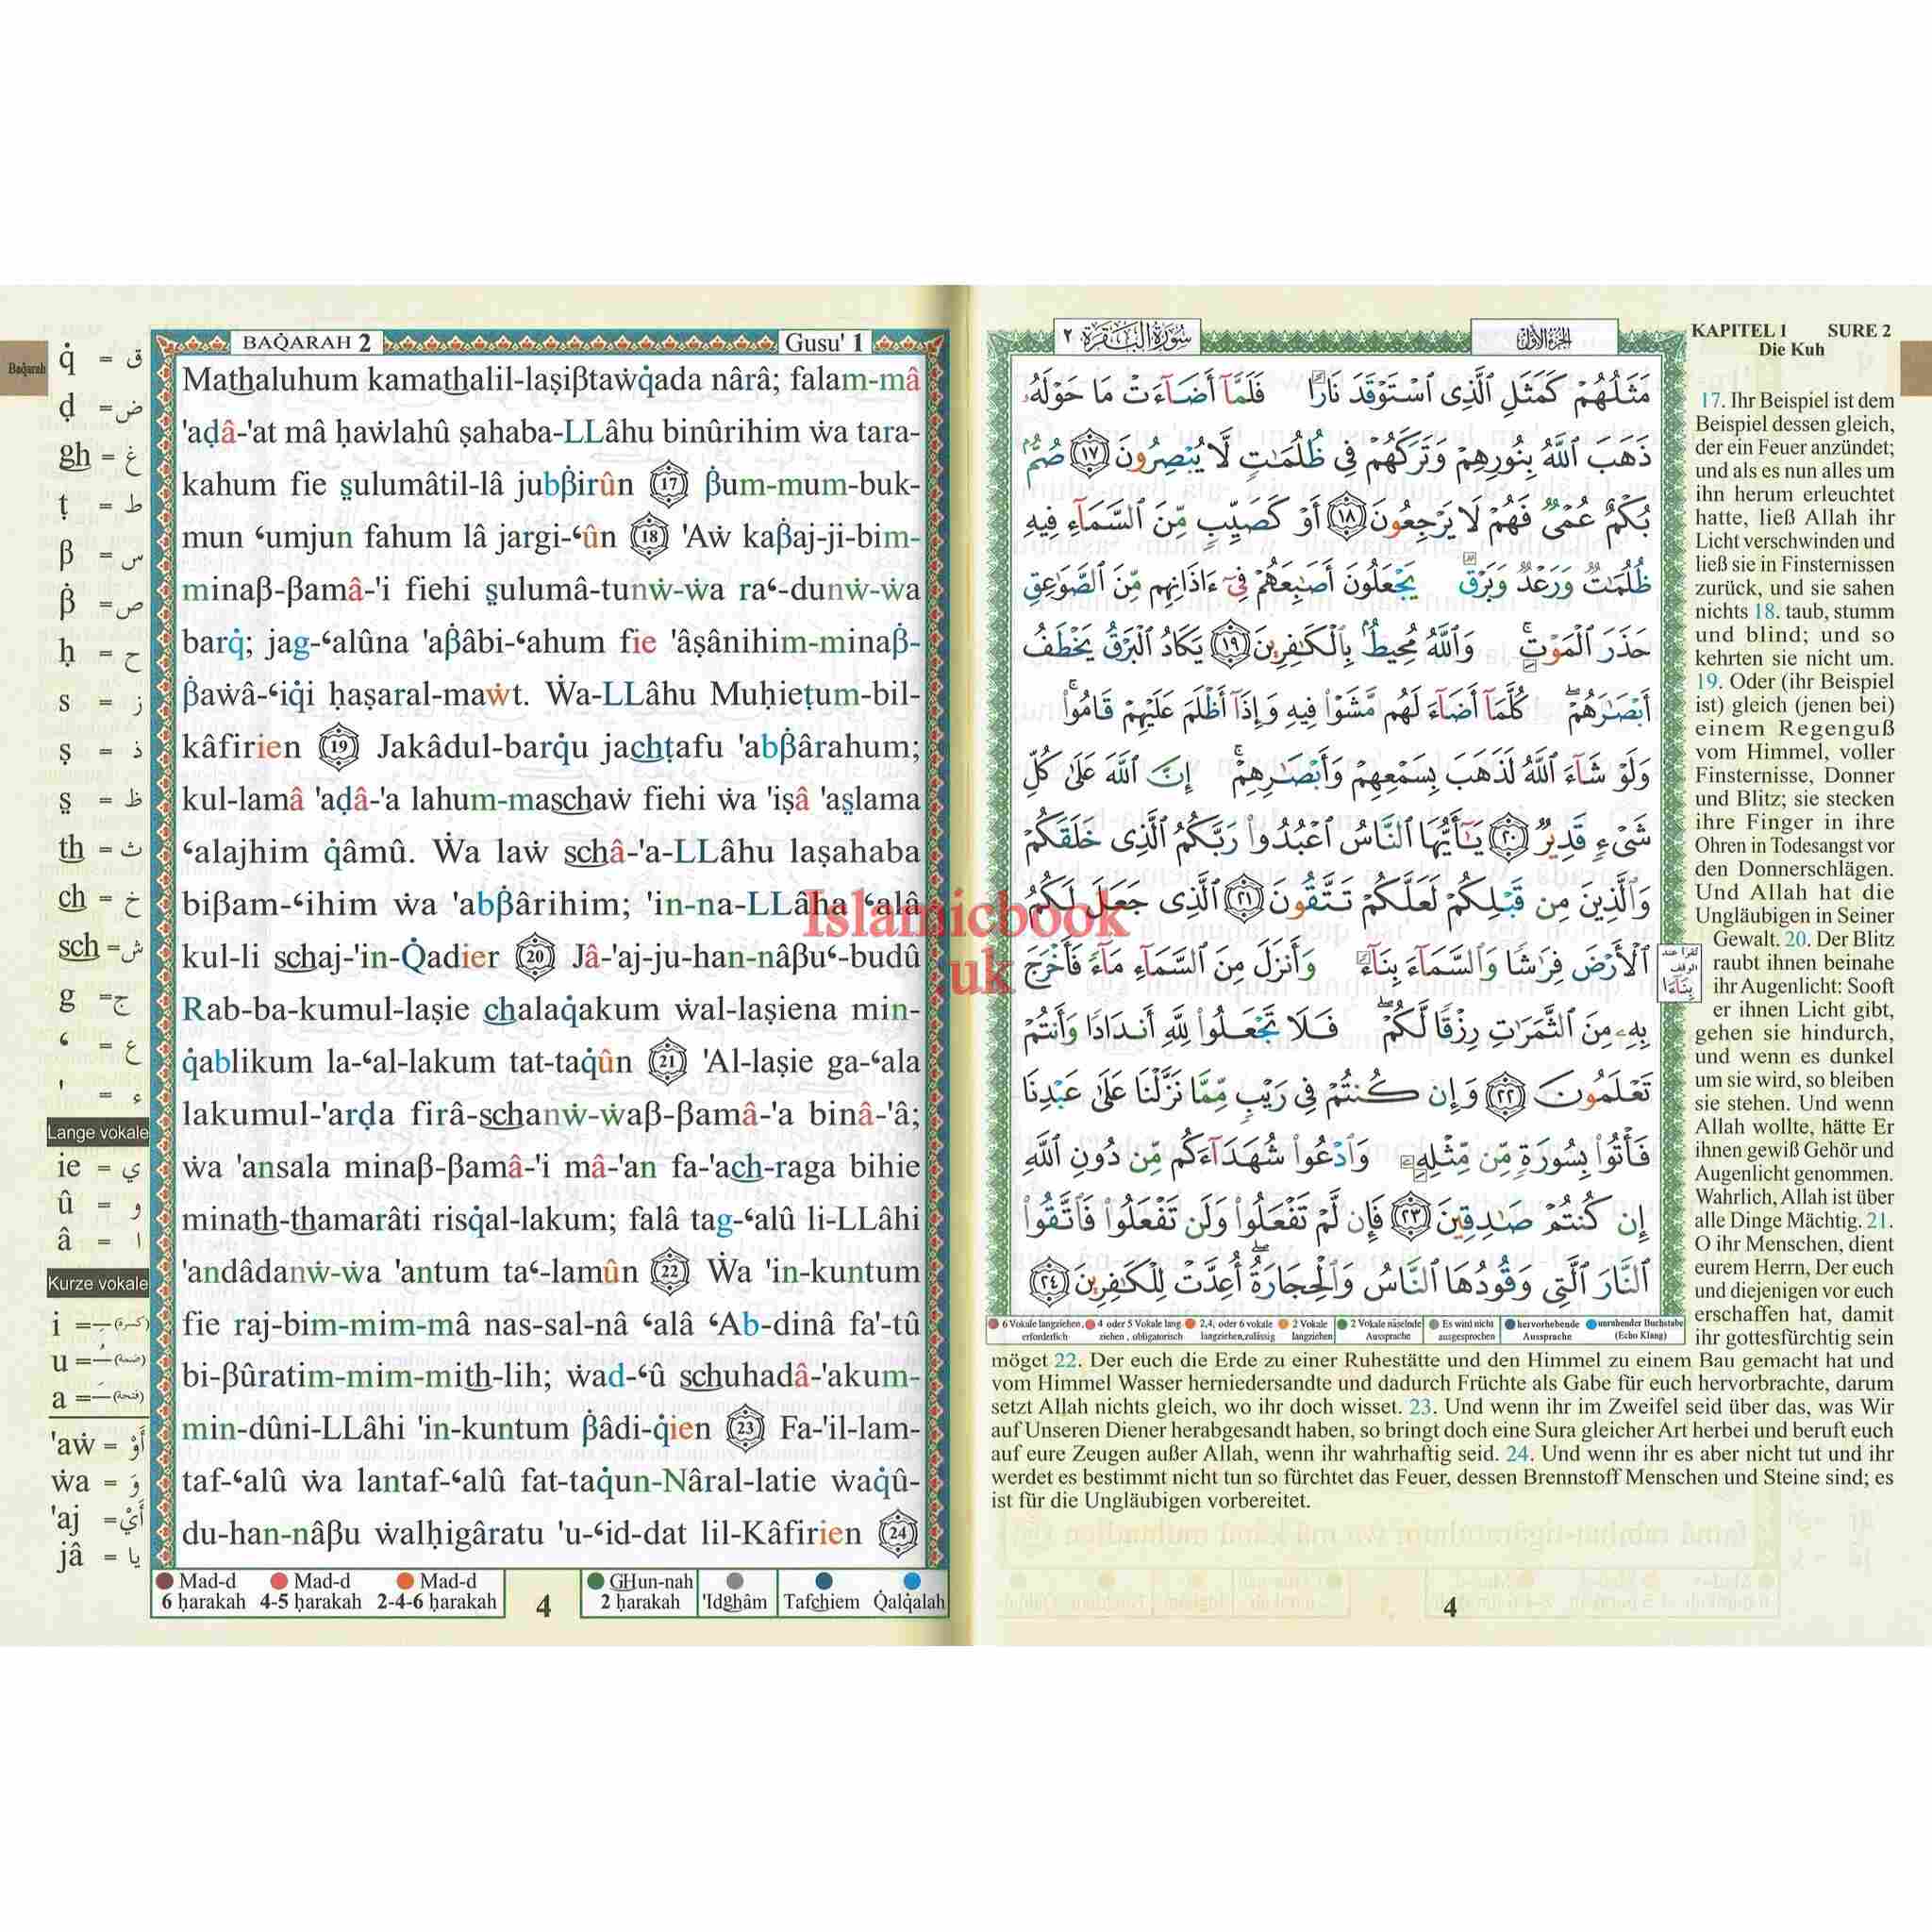 Baq̇arah
q̇ = ق
ḍ = ض
gh = غ
ṭ = ط
β = س
β̇ = ص
ḥ = ح
s = ز
ṣ = ذ
ṣ̤ = ظ
th = ث
ch = خ
sch = ش
g = ج
ʻ = ع
' = ء
Lange vokale
ie = ي
û = و
â = ا
Kurze vokale
i = ـِ (كسرة)
u = ـُ (ضمة)
a = ـَ (فتحة)
'aẇ = أَوْ
ẇa = وَ
'aj = أَيْ
jâ = يا
BAQ̇ARAH 2
Gusu' 1
Mathaluhum kamathalil-laṣiβtaẇq̇ada nârâ; falam-mâ
'aḍâ-'at mâ ḥaẇlahû ṣahaba-LLâhu binûrihim ẇa tara-
kahum fie ṣ̤ulumâtil-lâ jubβ̇irûn 17 β̇um-mum-buk-
mun ʻumjun fahum lâ jargi-ʻûn 18 'Aẇ kaβ̇aj-ji-bim-
minaβ-βamâ-'i fiehi ṣ̤ulumâ-tunẇ-ẇa raʻ-dunẇ-ẇa
barq̇; jag-ʻalûna 'aβ̇âbi-ʻahum fie 'âṣânihim-minaβ̇-
β̇aẇâ-ʻiq̇i ḥaṣaral-maẇt. Ẇa-LLâhu Muḥieṭum-bil-
kâfirien 19 Jakâdul-barq̇u jachṭafu 'abβ̇ârahum;
kul-lamâ 'aḍâ-'a lahum-maschaẇ fiehi ẇa 'iṣâ 'aṣ̤lama
ʻalajhim q̇âmû. Ẇa laẇ schâ-'a-LLâhu laṣahaba
biβam-ʻihim ẇa 'abβ̇ârihim; 'in-na-LLâha ʻalâ
kul-li schaj-'in-Q̇adier 20 Jâ-'aj-ju-han-nâβuʻ-budû
Rab-ba-kumul-laṣie chalaq̇akum ẇal-laṣiena min-
q̇ablikum la-ʻal-lakum tat-taq̇ûn 21 'Al-laṣie ga-ʻala
lakumul-'arḍa firâ-schanẇ-ẇaβ-βamâ-'a binâ-'â;
ẇa 'ansala minaβ-βamâ-'i mâ-'an fa-'ach-raga bihie
minath-thamarâti risq̇al-lakum; falâ tag-ʻalû li-LLâhi
'andâdanẇ-ẇa 'antum taʻ-lamûn 22 Ẇa 'in-kuntum
fie raj-bim-mim-mâ nas-sal-nâ ʻalâ ʻAb-dinâ fa'-tû
bi-βûratim-mim-mith-lih; ẇad-ʻû schuhadâ-'akum-
min-dûni-LLâhi 'in-kuntum β̇âdi-q̇ien 23 Fa-'il-lam-
taf-ʻalû ẇa lantaf-ʻalû fat-taq̇un-Nâral-latie ẇaq̇û-
du-han-nâβu ẇalḥigâratu 'u-ʻid-dat lil-Kâfirien 24
Mad-d Mad-d Mad-d GHun-nah
6 ḥarakah 4-5 ḥarakah 2-4-6 ḥarakah 2 ḥarakah 'Idghâm Tafchiem Q̇alq̇alah
4
Islamicbook
.uk
الجزء الأول
سورة البقرة ٢
مَثَلُهُمْ كَمَثَلِ ٱلَّذِى ٱسْتَوْقَدَ نَارًا فَلَمَّآ أَضَآءَتْ مَا حَوْلَهُۥ
ذَهَبَ ٱللَّهُ بِنُورِهِمْ وَتَرَكَهُمْ فِى ظُلُمَٰتٍ لَّا يُبْصِرُونَ ١٧ صُمٌّۢ
بُكْمٌ عُمْىٌ فَهُمْ لَا يَرْجِعُونَ ١٨ أَوْ كَصَيِّبٍ مِّنَ ٱلسَّمَآءِ فِيهِ
ظُلُمَٰتٌ وَرَعْدٌ وَبَرْقٌ يَجْعَلُونَ أَصَٰبِعَهُمْ فِىٓ ءَاذَانِهِم مِّنَ ٱلصَّوَٰعِقِ
حَذَرَ ٱلْمَوْتِ ۚ وَٱللَّهُ مُحِيطٌۢ بِٱلْكَٰفِرِينَ ١٩ يَكَادُ ٱلْبَرْقُ يَخْطَفُ
أَبْصَٰرَهُمْ ۖ كُلَّمَآ أَضَآءَ لَهُم مَّشَوْا۟ فِيهِ وَإِذَآ أَظْلَمَ عَلَيْهِمْ قَامُوا۟ ۚ
وَلَوْ شَآءَ ٱللَّهُ لَذَهَبَ بِسَمْعِهِمْ وَأَبْصَٰرِهِمْ ۚ إِنَّ ٱللَّهَ عَلَىٰ كُلِّ
شَىْءٍ قَدِيرٌ ٢٠ يَٰٓأَيُّهَا ٱلنَّاسُ ٱعْبُدُوا۟ رَبَّكُمُ ٱلَّذِى خَلَقَكُمْ
وَٱلَّذِينَ مِن قَبْلِكُمْ لَعَلَّكُمْ تَتَّقُونَ ٢١ ٱلَّذِى جَعَلَ لَكُمُ
ٱلْأَرْضَ فِرَٰشًا وَٱلسَّمَآءَ بِنَآءً وَأَنزَلَ مِنَ ٱلسَّمَآءِ مَآءً فَأَخْرَجَ
بِهِۦ مِنَ ٱلثَّمَرَٰتِ رِزْقًا لَّكُمْ ۖ فَلَا تَجْعَلُوا۟ لِلَّهِ أَندَادًا وَأَنتُمْ
تَعْلَمُونَ ٢٢ وَإِن كُنتُمْ فِى رَيْبٍ مِّمَّا نَزَّلْنَا عَلَىٰ عَبْدِنَا
فَأْتُوا۟ بِسُورَةٍ مِّن مِّثْلِهِۦ وَٱدْعُوا۟ شُهَدَآءَكُم مِّن دُونِ ٱللَّهِ
إِن كُنتُمْ صَٰدِقِينَ ٢٣ فَإِن لَّمْ تَفْعَلُوا۟ وَلَن تَفْعَلُوا۟ فَٱتَّقُوا۟
ٱلنَّارَ ٱلَّتِى وَقُودُهَا ٱلنَّاسُ وَٱلْحِجَارَةُ ۖ أُعِدَّتْ لِلْكَٰفِرِينَ ٢٤
تُقرأ عند
الوقف
بناءا
6 Vokale langziehen, 4 oder 5 Vokale lang 2,4, oder 6 vokale 2 Vokale 2 Vokale näselnde Es wird nicht hervorhebende unruhender Buchstabe
erforderlich ziehen, obligatorisch langziehen,zulässig langziehen Aussprache ausgesprochen Aussprache (Echo Klang)
KAPITEL 1 SURE 2
Die Kuh
17. Ihr Beispiel ist dem
Beispiel dessen gleich,
der ein Feuer anzündet;
und als es nun alles um
ihn herum erleuchtet
hatte, ließ Allah ihr
Licht verschwinden und
ließ sie in Finsternissen
zurück, und sie sahen
nichts 18. taub, stumm
und blind; und so
kehrten sie nicht um.
19. Oder (ihr Beispiel
ist) gleich (jenen bei)
einem Regenguß
vom Himmel, voller
Finsternisse, Donner
und Blitz; sie stecken
ihre Finger in ihre
Ohren in Todesangst vor
den Donnerschlägen.
Und Allah hat die
Ungläubigen in Seiner
Gewalt. 20. Der Blitz
raubt ihnen beinahe
ihr Augenlicht: Sooft
er ihnen Licht gibt,
gehen sie hindurch,
und wenn es dunkel
um sie wird, so bleiben
sie stehen. Und wenn
Allah wollte, hätte Er
ihnen gewiß Gehör und
Augenlicht genommen.
Wahrlich, Allah ist über
alle Dinge Mächtig. 21.
O ihr Menschen, dient
eurem Herrn, Der euch
und diejenigen vor euch
erschaffen hat, damit
ihr gottesfürchtig sein
möget 22. Der euch die Erde zu einer Ruhestätte und den Himmel zu einem Bau gemacht hat und
vom Himmel Wasser herniedersandte und dadurch Früchte als Gabe für euch hervorbrachte, darum
setzt Allah nichts gleich, wo ihr doch wisset. 23. Und wenn ihr im Zweifel seid über das, was Wir
auf Unseren Diener herabgesandt haben, so bringt doch eine Sura gleicher Art herbei und beruft euch
auf eure Zeugen außer Allah, wenn ihr wahrhaftig seid. 24. Und wenn ihr es aber nicht tut und ihr
werdet es bestimmt nicht tun so fürchtet das Feuer, dessen Brennstoff Menschen und Steine sind; es
ist für die Ungläubigen vorbereitet.
4